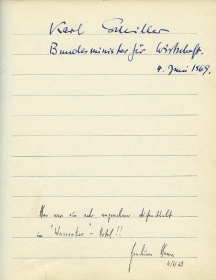 Karl Schiller
Bundesminister für Wirtschaft.
4. Juni 1969.
Es war ein sehr angenehmer Aufenthalt
im "   " - Hotel!!
4/6/69